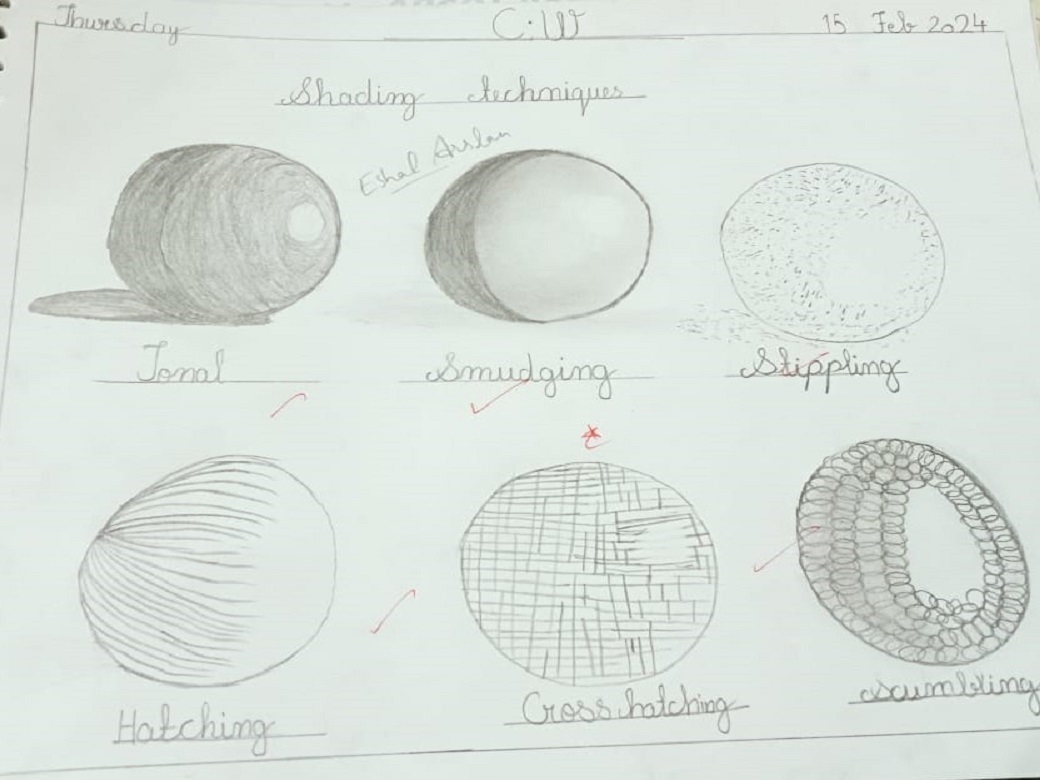 Thursday C.W 15 Feb 2024
Shading techniques
Eshal Arslan
Tonal Smudging Stippling
Hatching Cross hatching Scumbling